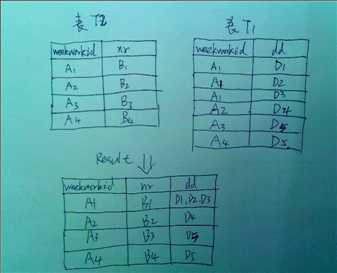 表T2
weekworkid nr
A1 B1
A2 B2
A3 B3
A4 B4
表T1
weekworkid dd
A1 D1
A1 D2
A1 D3
A2 D4
A3 D5
A4 D5
Result
weekworkid nr dd
A1 B1 D1,D2,D3
A2 B2 D4
A3 B3 D5
A4 B4 D5